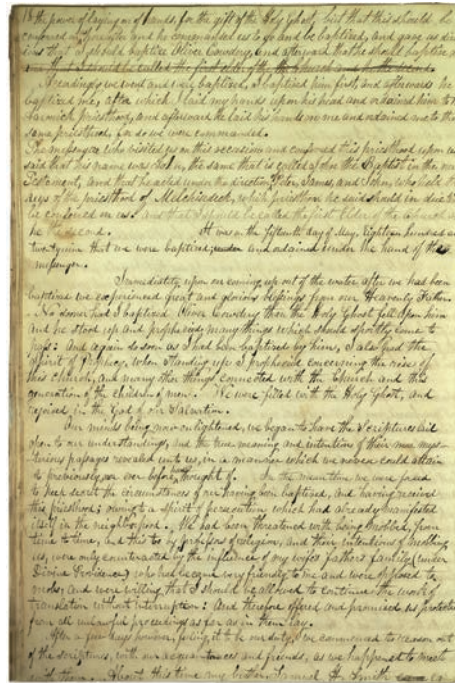 18 the power of laying on of hands, for the gift of the Holy Ghost, but that this should be
conferred on us hereafter and he commanded us to go and be baptized, and gave us direc
tions that I should baptize Oliver Cowdery, and afterward that he should baptize me
Accordingly we went and were baptized, I baptized him first, and afterwards he
baptized me, after which I laid my hands upon his head and ordained him to the
Aaronick priesthood, and afterward he laid his hands on me and ordained me to the
same priesthood, for so we were commanded.
The messenger who visited us on this occasion and conferred this priesthood upon us
said that his name was John, the same that is called John the Baptist in the new
Testament, and that he acted under the direction of Peter, James, and John, who held the
keys of the priesthood of Melchisedeck, which priesthood he said should in due time
be conferred on us. and that I should be called the first Elder of the Church and
he the second. It was on the fifteenth day of May, Eighteen hundred and
twenty nine that we were baptized; and ordained under the hand of the
messenger.
Immediately upon our coming up out of the water after we had been
baptized we experienced great and glorious blessings from our Heavenly Father.
No sooner had I baptized Oliver Cowdery than the Holy Ghost fell upon him
and he stood up and prophecied many things which should shortly come to
pass: and again so soon as I had been baptized by him, I also had the
Spirit of Prophecy, when standing up I prophecied concerning the rise of
this church, and many other things connected with the Church and this
generation of the children of men. We were filled with the Holy Ghost, and
rejoiced in the God of our Salvation.
Our minds being now enlightened, we began to have the Scriptures laid
open to our understandings, and the true meaning and intention of their more mys
terious passages revealed unto us, in a manner which we never could attain
to previously, nor ever before had thought of. In the meantime we were forced
to keep secret the circumstances of our having been baptized, and having received
this priesthood; owing to a spirit of persecution which had already manifested
itself in the neighborhood. We had been threatened with being mobbed, from
time to time, and this too by professors of religion, and their intentions of mobbing
us, were only counteracted by the influence of my wife's father's family (under
Divine Providence) who had became very friendly to me and were opposed to
mobs; and were willing that I should be allowed to continue the work of
translation without interruption: And therefore offered and promised us protection
from all unlawful proceedings as far as in them lay.
After a few days however, feeling it to be our duty, we commenced to reason out
of the scriptures, with our acquaintances and friends, as we happened to meet
with them. About this time my brother Samuel H. Smith came